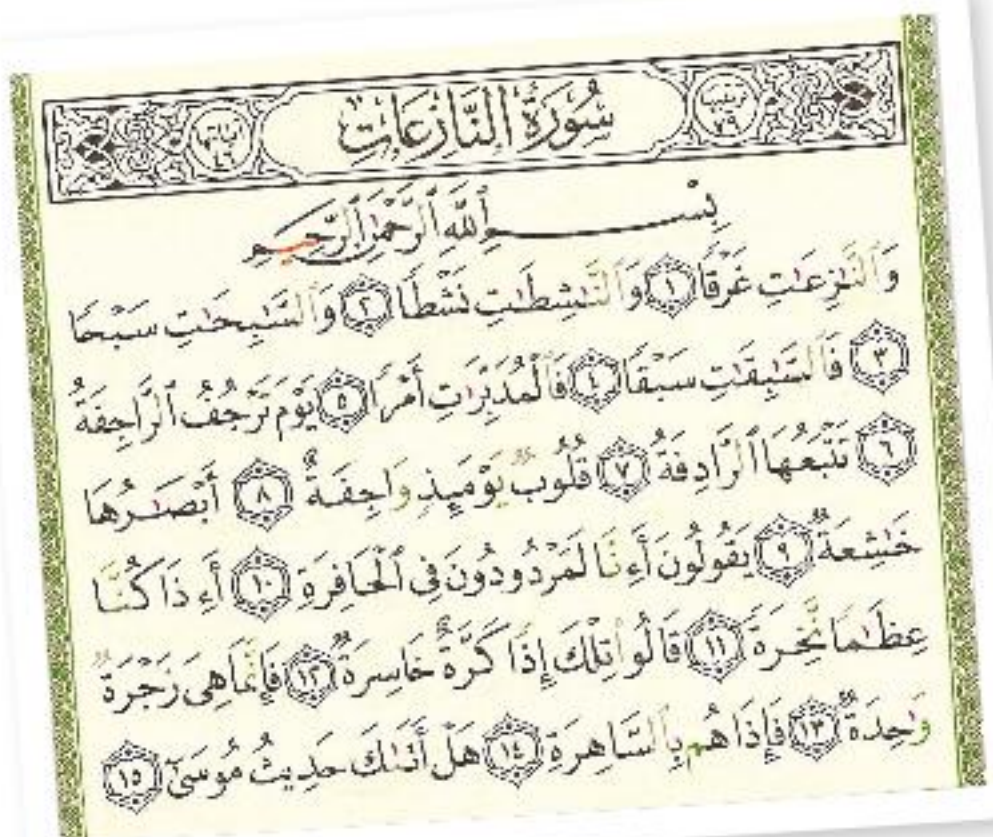 ترتيبها ٧٩ سُورَةُ النَّازِعَاتِ آياتها ٤٦
بِسْمِ ٱللَّهِ ٱلرَّحْمَٰنِ ٱلرَّحِيمِ
وَٱلنَّٰزِعَٰتِ غَرْقًا ١ وَٱلنَّٰشِطَٰتِ نَشْطًا ٢ وَٱلسَّٰبِحَٰتِ سَبْحًا
٣ فَٱلسَّٰبِقَٰتِ سَبْقًا ٤ فَٱلْمُدَبِّرَٰتِ أَمْرًا ٥ يَوْمَ تَرْجُفُ ٱلرَّاجِفَةُ
٦ تَتْبَعُهَا ٱلرَّادِفَةُ ٧ قُلُوبٌ يَوْمَئِذٍ وَاجِفَةٌ ٨ أَبْصَٰرُهَا
خَٰشِعَةٌ ٩ يَقُولُونَ أَءِنَّا لَمَرْدُودُونَ فِى ٱلْحَافِرَةِ ١٠ أَءِذَا كُنَّا
عِظَٰمًا نَّخِرَةً ١١ قَالُوا۟ تِلْكَ إِذًا كَرَّةٌ خَاسِرَةٌ ١٢ فَإِنَّمَا هِىَ زَجْرَةٌ
وَٰحِدَةٌ ١٣ فَإِذَا هُم بِٱلسَّاهِرَةِ ١٤ هَلْ أَتَىٰكَ حَدِيثُ مُوسَىٰٓ ١٥